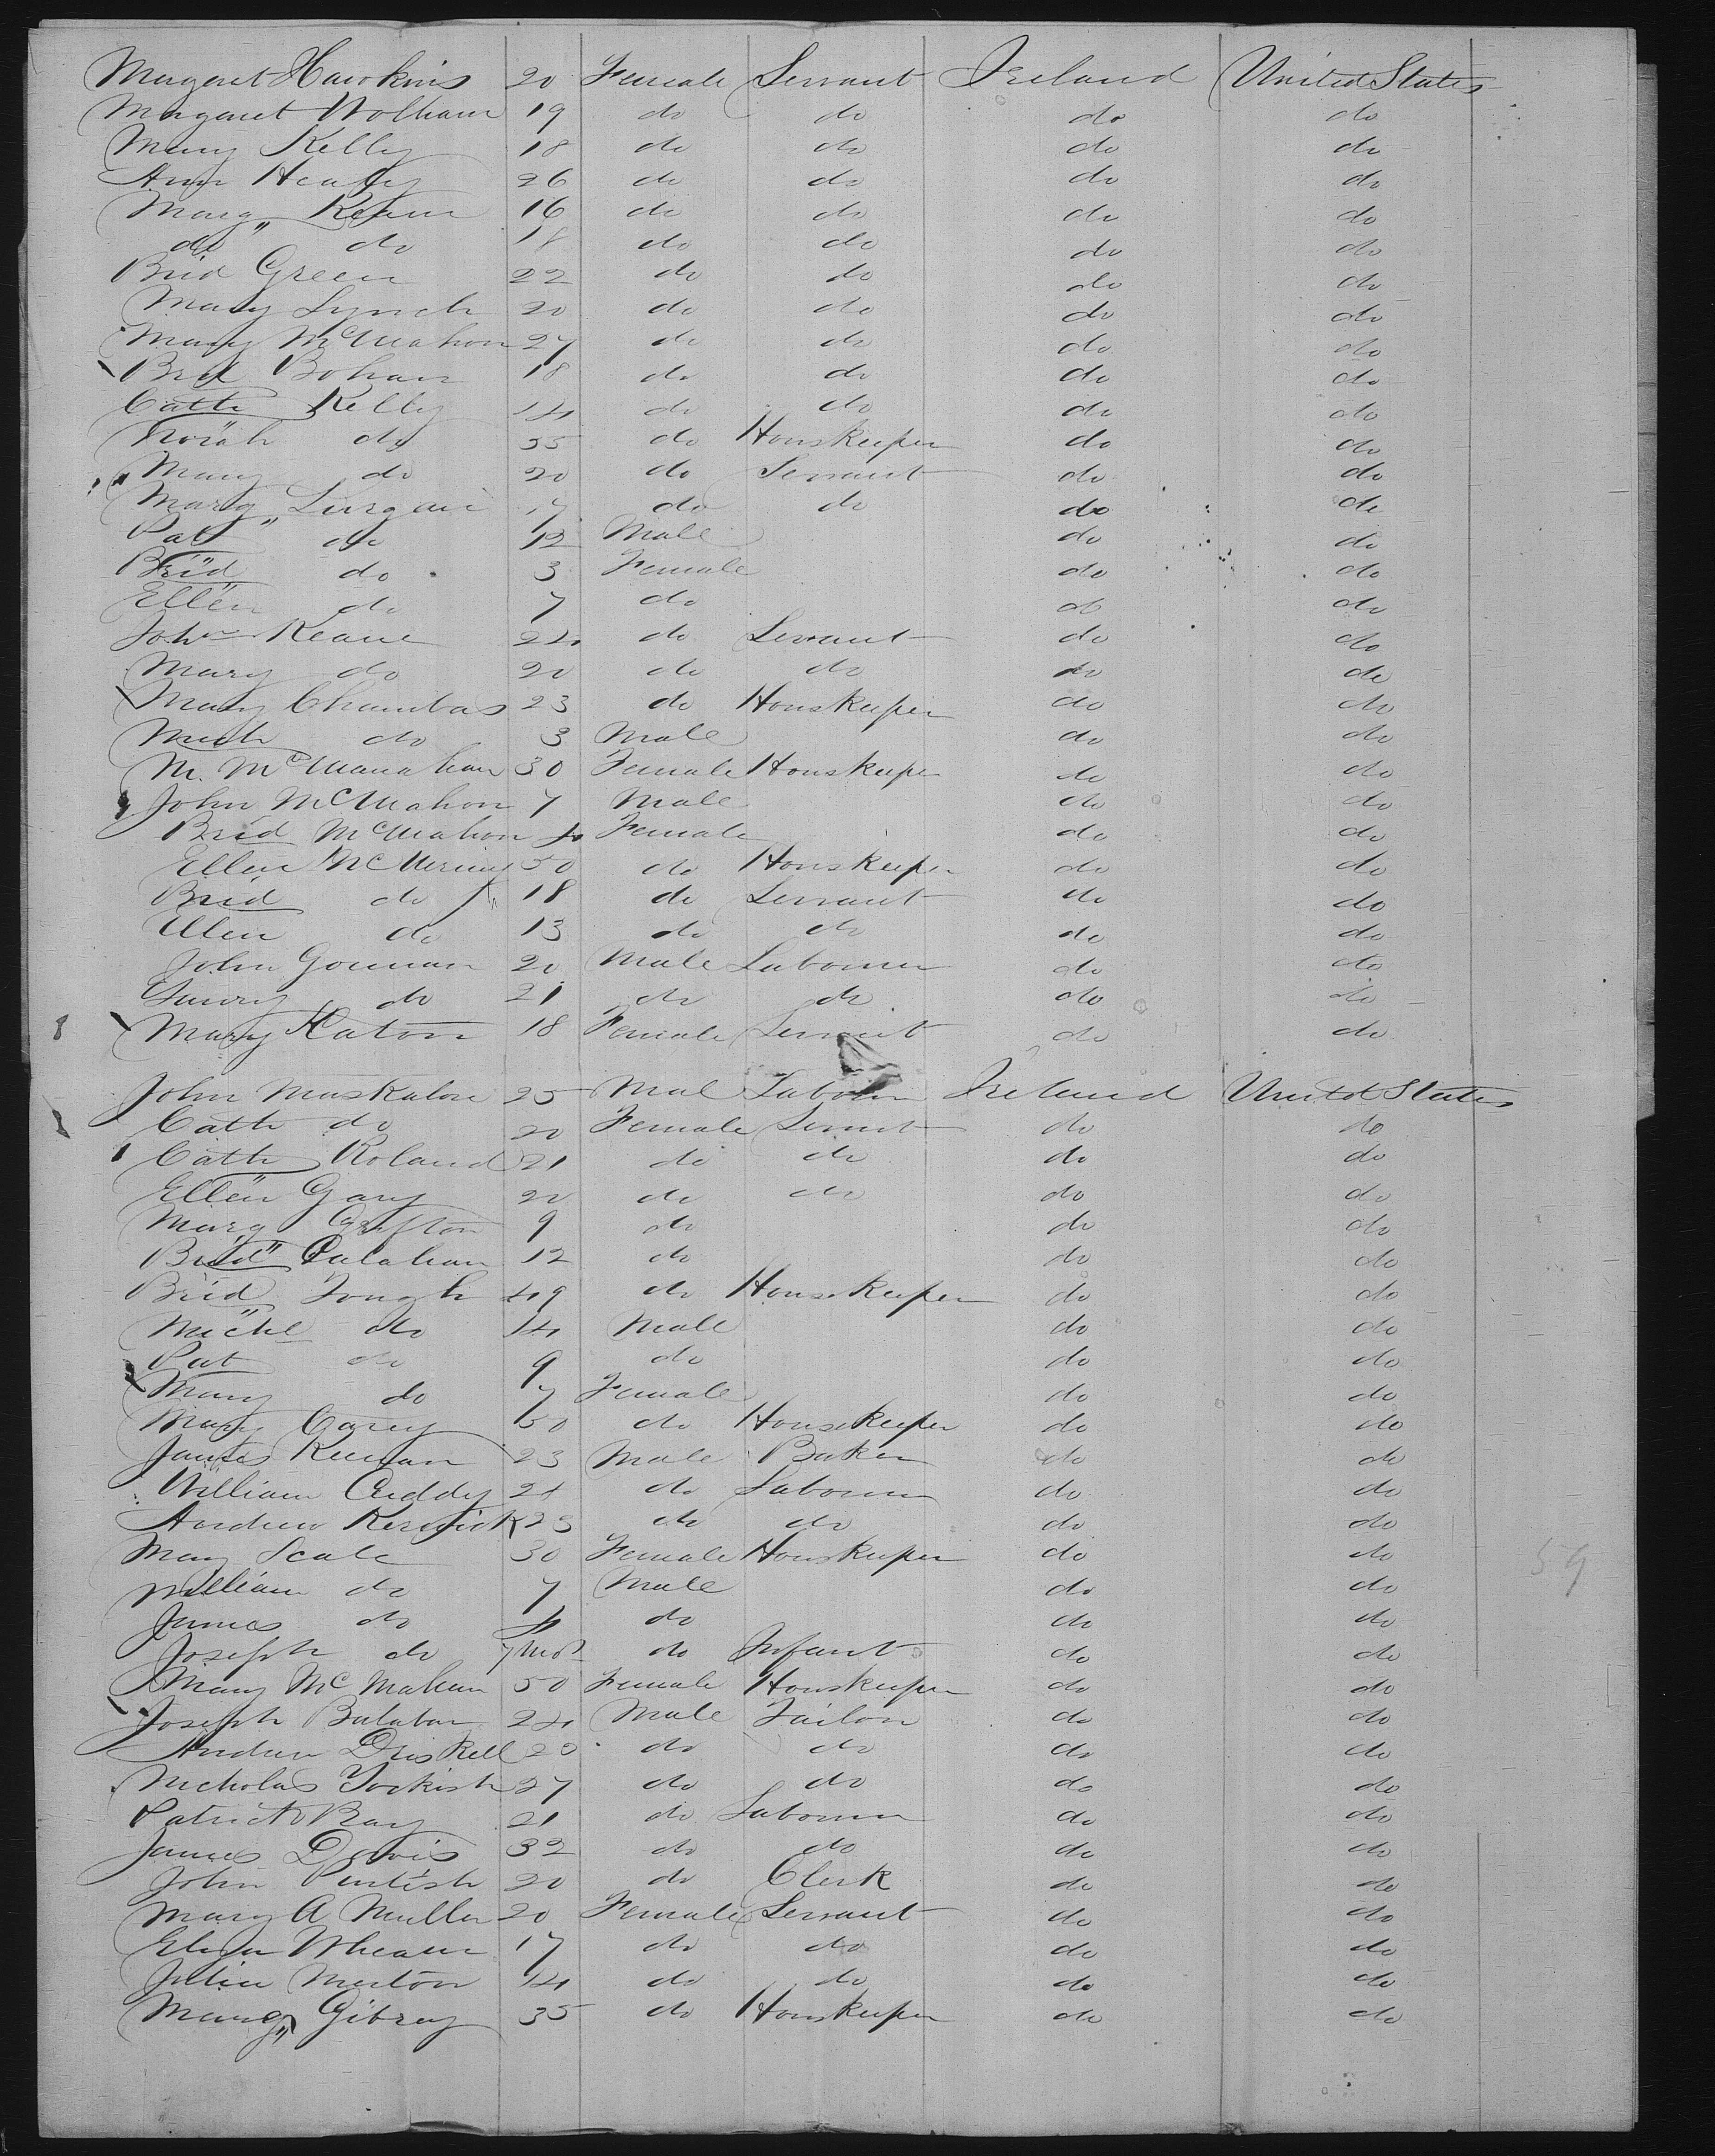 Margaret Hawkins 20 Female Servant Ireland United States
Margaret Wolham 19 do do do do
Mary Kelly 18 do do do do
Ann Healy 26 do do do do
Marg" Keane 16 do do do do
do do 18 do do do do
Brid Green 22 do do do do
Mary Lynch 20 do do do do
Mary McMahon 27 do do do do
Brid Bohan 18 do do do do
Cath Kelly 14 do do do do
Norah do 55 do Houskeeper do do
Mary do 20 do Servant do do
Marg" Lurgan 17 do do do do
Pat do 12 Male do do
Brid do 3 Female do do
Ellen do 7 do do do
John Keane 24 do Servant do do
Mary do 20 do do do do
Mary Chambas 23 do Houskeeper do do
Mich do 3 Male do do
M. McManahan 30 Female Houskeeper do do
John McMahon 7 Male do do
Brid McMahon 4 Female do do
Ellen 50 do Houskeeper do do
Brid do 18 do Servant do do
Ellen do 13 do do do do
John Gorman 20 Male Labourer do do
do 21 do do do do
8 Mary Eaton 18 Female Servant do do
John Muskalon 25 Mal Labour Ireland United States
Cath do 20 Female Servnt do do
Cath Roland 21 do do do do
Ellen Gary 20 do do do do
Marg Grifton 9 do do do
Brid" Culahan 12 do do do
Brid Tough 49 do Housekeeper do do
Michl do 14 Male do do
Pat do 9 do do do
Mary do 7 Female do do
Mary Carey 50 do Housekeeper do do
James Keenan 23 Male Baker do do
William Cuddy 24 do Labourer do do
Andrew 25 do do do do
Mary Scale 30 Female Houskeeper do do
William do 7 Male do do
James do 4 do do do
Joseph do 7 Mos do Infant do do
Mary McMahan 50 Female Houskeeper do do
Joseph Balaban 24 Male Tailor do do
Andrew Driskell 20 do do do do
Nicholas Yorkish 27 do do do do
Patrick Ray 21 do Labourer do do
James Davis 32 do do do do
John Purtish 20 do Clerk do do
Mary A Muller 20 Female Servant do do
Eliza Whealen 17 do do do do
Julia Merton 14 do do do do
Marg" Gibray 35 do Houskeeper do do
59